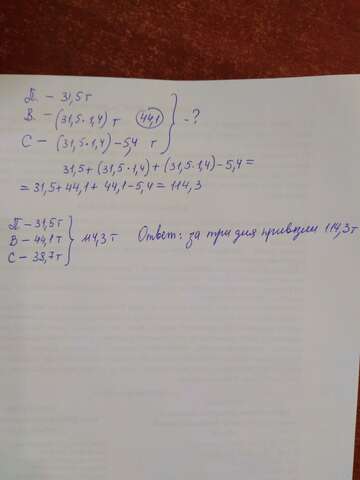 П. – 31,5 т
В – (31,5 · 1,4) т 44,1
С – (31,5 · 1,4) – 5,4 т } – ?
31,5 + (31,5 · 1,4) + (31,5 · 1,4) – 5,4 =
= 31,5 + 44,1 + 44,1 – 5,4 = 114,3
П – 31,5 т
В – 44,1 т } 114,3 т Ответ: за три дня привезли 114,3 т
С – 38,7 т